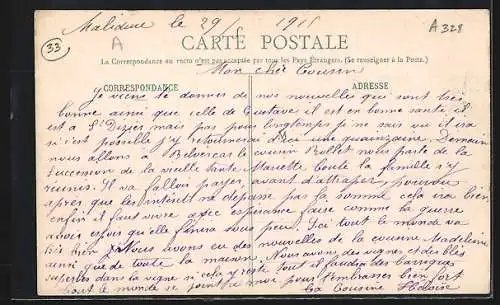 le 29/5 1915
33
A
A 328
CARTE POSTALE
La Correspondance au recto n'est pas acceptée par tous les Pays Étrangers. (Se renseigner à la Poste.)
Mon cher Cousin
CORRESPONDANCE
ADRESSE
Je viens te donner de nos nouvelles qui sont très
bonne ainsi que celle de Gustave il est en bonne santé il
est a St Dizier mais pas pour longtemps je ne sais ou il ira
si c'est possible j'y retournerai d'ici une quainzaine. Demain
nous allons à le cousin Rollet nous parle de la
Succession de la vieille tante Mariette toute la famille s'y
réunis. Il va falloir payer, avant d'attaper, pourvu
après que les intérêt ne dépasse pas la somme cela ira bien
enfin il faut vivre avec espérance faire comme la guerre
avoir espoir qu'elle finira sous peu. Ici tout le monde va
très bien nous avons eu des nouvelles de la cousine Madeleine
ainsi que de toute la maison. Nous avons des vignes et des blés
superbes dans la vigne si cela y reste tout il faudra des barriques
tout le monde se joint a moi pour t'embrasser bien fort
ta Cousine